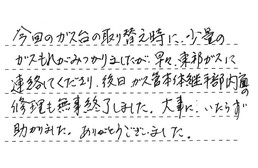 今回のガス台の取り替え時に、少量の
ガスもれがみつかりましたが、早々、東部ガスに
連絡してくださり、後日ガス管本体継手部内直の
修理も無事終了しました。大事に、いたらず
助かりました。ありがとうございました。